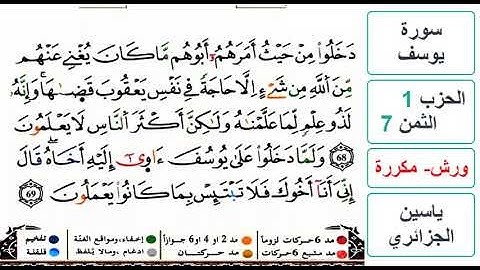 دَخَلُوا۟ مِنْ حَيْثُ أَمَرَهُمُۥٓ أَبُوهُم مَّا كَانَ يُغْنِے عَنْهُم
مِّنَ ٱللَّهِ مِن شَےْءٍ اِلَّا حَاجَةً فِے نَفْسِ يَعْقُوبَ قَضَىٰهَا وَإِنَّهُۥ
لَذُو عِلْمٍ لِّمَا عَلَّمْنَٰهُ وَلَٰكِنَّ أَكْثَرَ ٱلنَّاسِ لَا يَعْلَمُونَ
68 وَلَمَّا دَخَلُوا۟ عَلَىٰ يُوسُفَ ءَاو۪ىٰٓ إِلَيْهِ أَخَاهُ قَالَ
إِنِّىَ أَنَآ أَخُوكَ فَلَا تَبْتَئِسْ بِمَا كَانُوا۟ يَعْمَلُونَ 69
سورة
يوسف
الحزب 1
الثمن 7
ورش- مكررة
ياسين
الجزائري
مد 6 حركات لزوماً مد 2 أو 4 أو 6 جوازاً إخفاء، ومواقع الغنّة تفخيم
مد مشبع 6 حركات مد حركتان إدغام، ومالا يُلفظ قلقلة